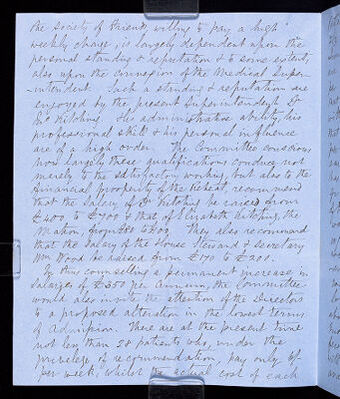 the Society of Friends, willing to pay a high
weekly charge, is largely dependent upon the
personal standing & reputation & to some extent,
also upon the connexion of the Medical Super-
-intendent. Such a standing & reputation are
enjoyed by the present Superintendent Dr
Kitching. His administrative ability, his
professional skill & his personal influence
are of a high order. The Committee conscious
how largely these qualifications conduce, not
merely to the satisfactory working, but also to the
financial prosperity of the Retreat, recommend
that the Salary of Dr Kitching be raised from
£400 to £700 & that of Elizabeth Kitching, the
Matron, from to They also recommend
that the Salary of the House Steward & Secretary
Wm Wood be raised from £170 to £200.
In thus counselling a permanent increase in
Salaries of £350 per Annum, the Committee
would also invite the attention of the Directors
to a proposed alteration in the lowest terms
of Admission. There are at the present time
not less than 28 patients who, under the
privilege of recommendation, pay only
per week, whilst the actual cost of each